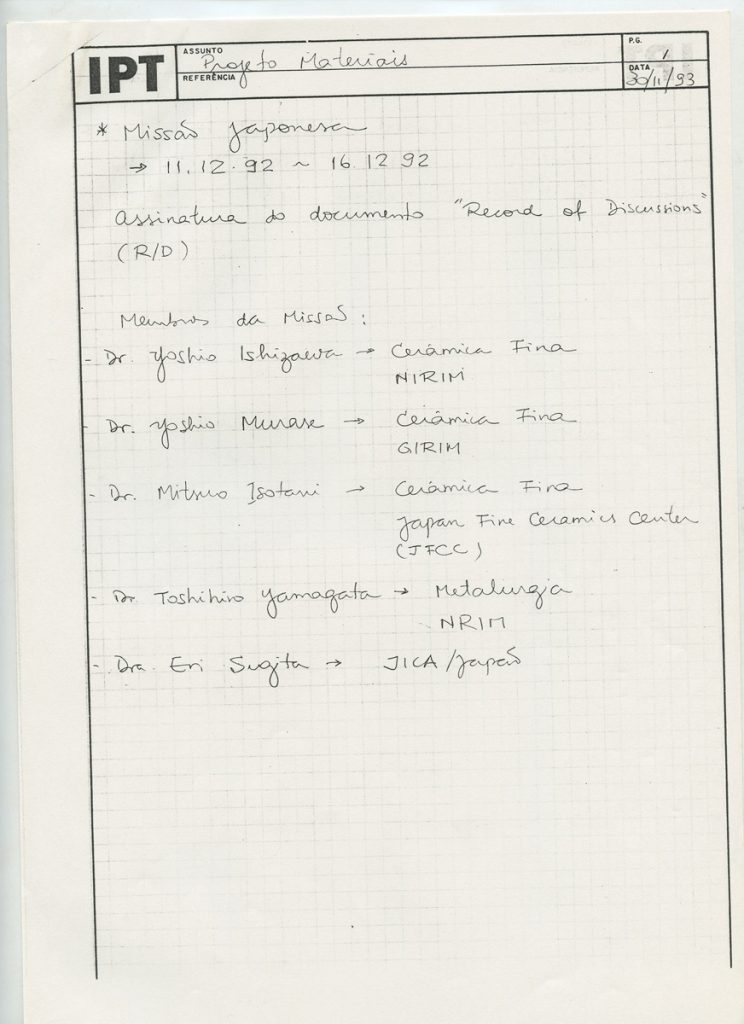 IPT
ASSUNTO
Projeto Materiais
REFERÊNCIA
P.G.
1
DATA
30/11/93
* Missão Japonesa
→ 11.12.92 ~ 16.12 92
Assinatura do documento "Record of Discussions"
(R/D)
Membros da Missão:
- Dr. Yoshio Ishizawa → Cerâmica Fina
NIRIM
- Dr. Yoshio Murase → Cerâmica Fina
GIRIM
- Dr. Mitsuo Isotani → Cerâmica Fina
Japan Fine Ceramics Center
(JFCC)
- Dr. Toshihiro Yamagata → Metalurgia
NRIM
- Dra. Eri Sugita → JICA/Japão